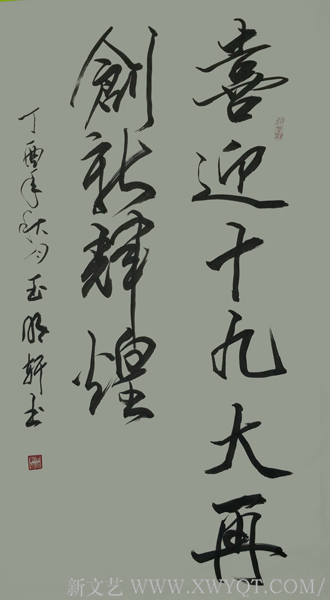 喜迎十九大再
創新輝煌
丁酉年秋月玉明軒书
新文艺 WWW.XWYQT.COM/